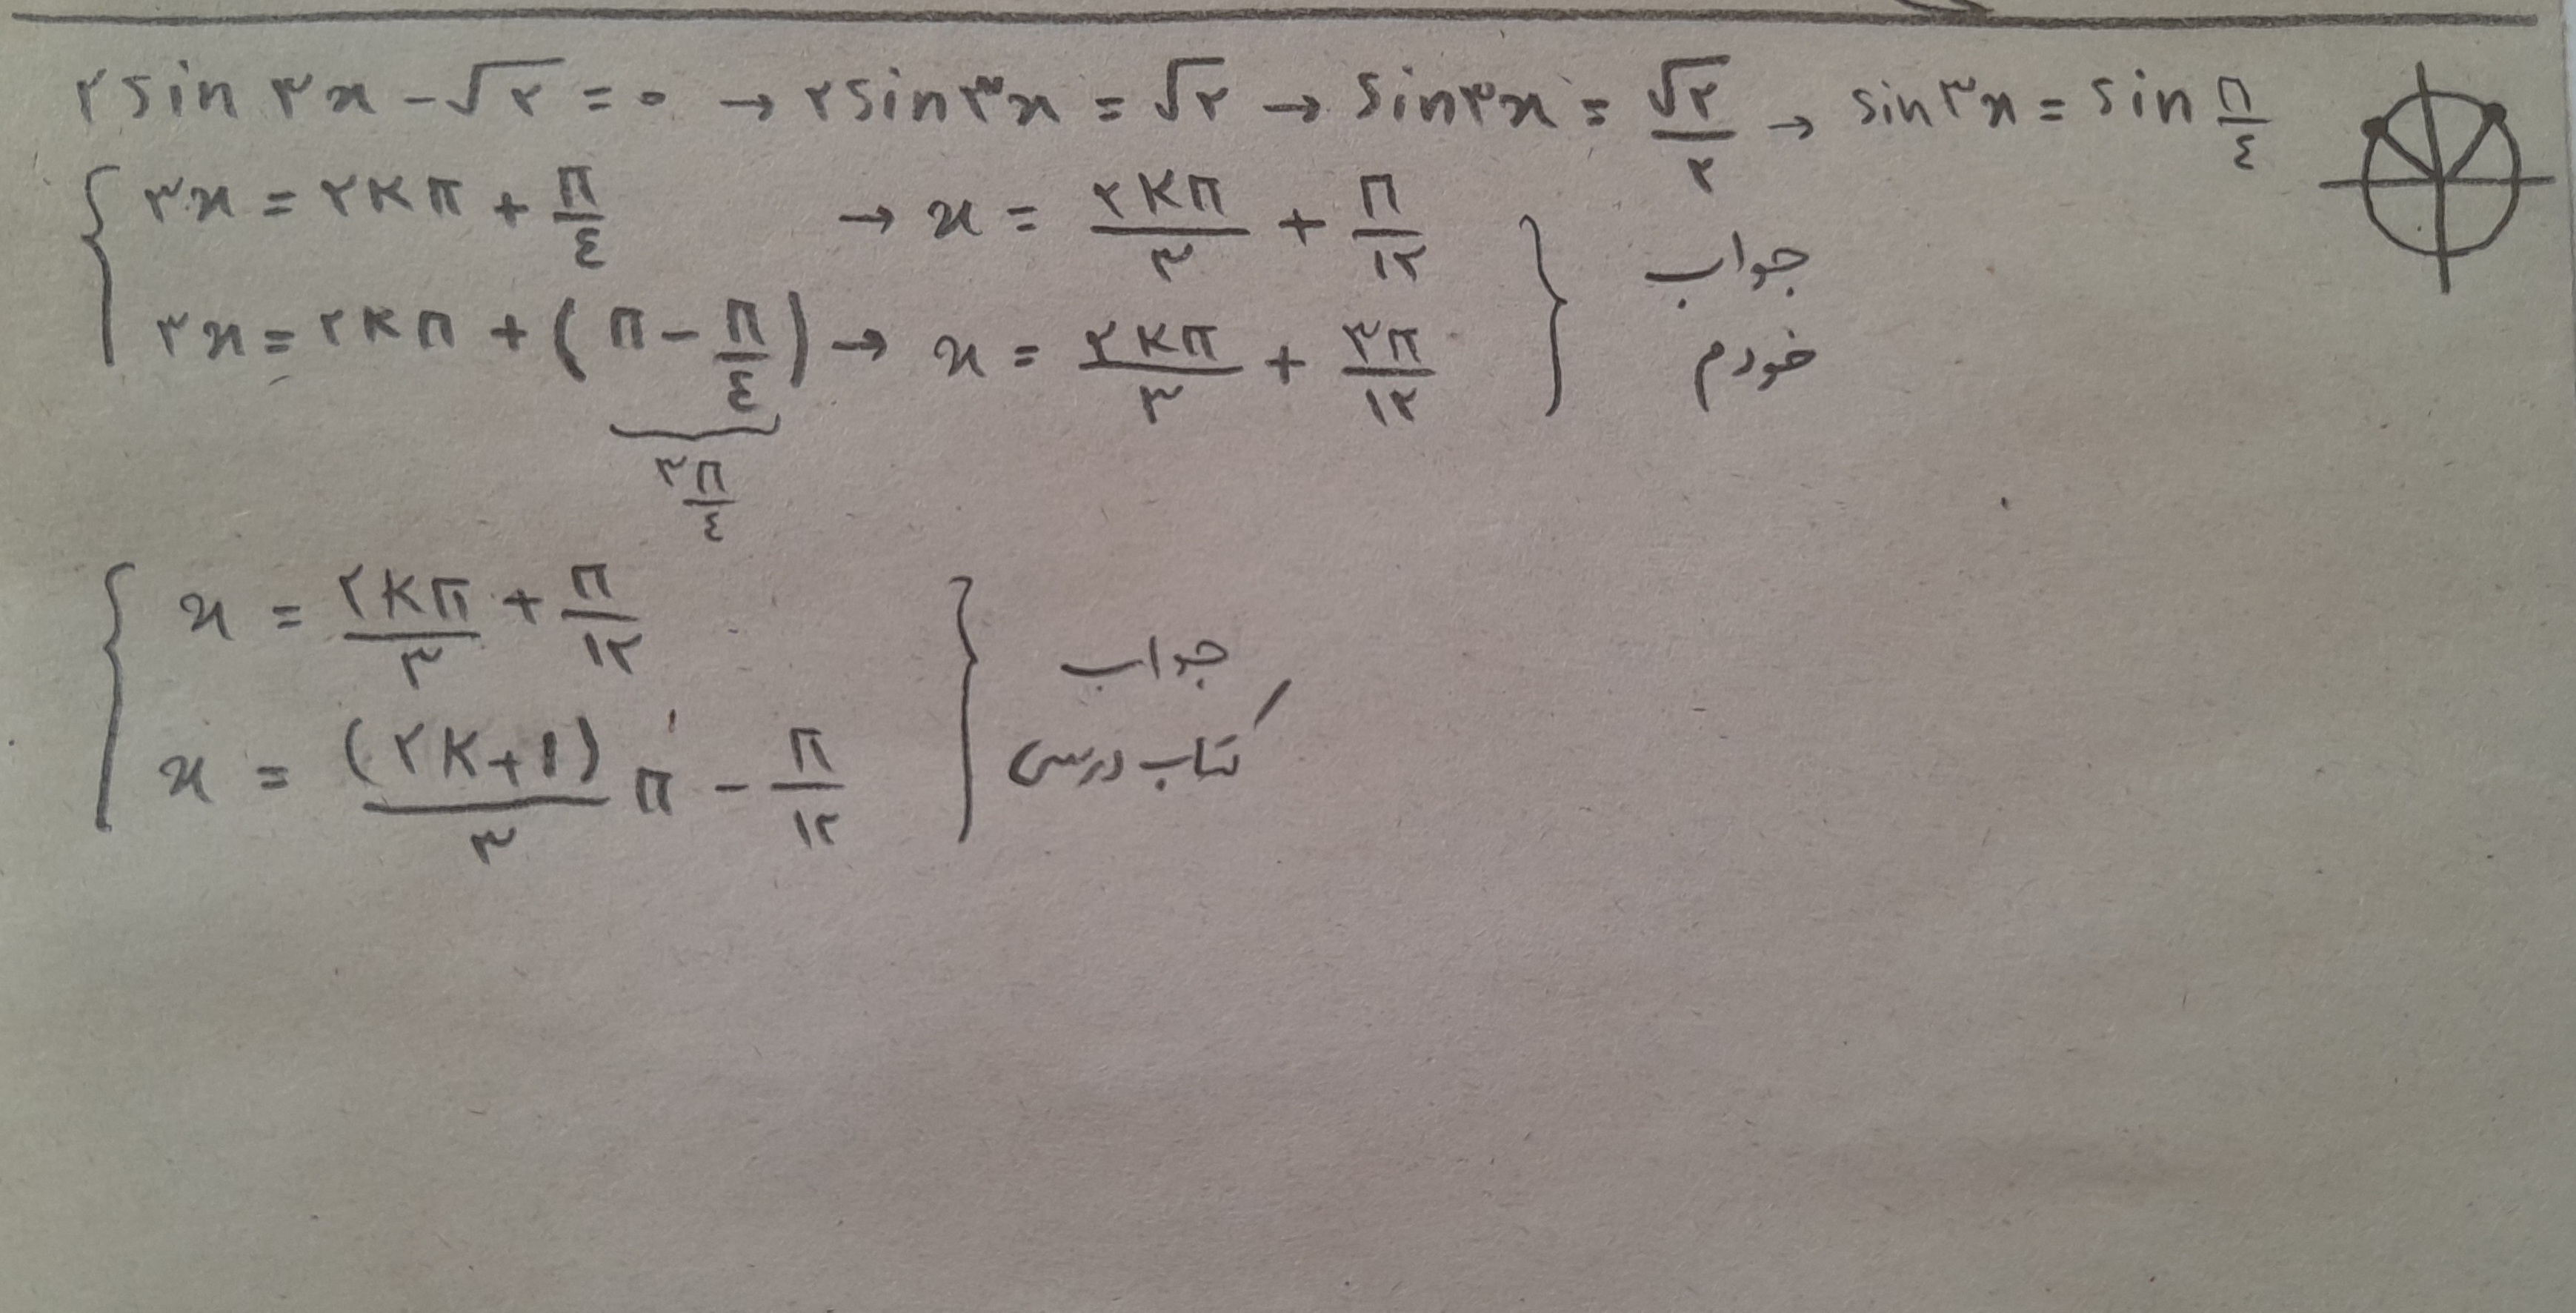 ۲sin ۳x - √۲ = ۰ → ۲sin۳x = √۲ → sin۳x = √۲/۲ → sin۳x = sin π/٤
{ ۳x = ۲kπ + π/٤ → x = ۲kπ/۳ + π/۱۲
۳x = ۲kπ + (π - π/٤) → x = ۲kπ/۳ + ۳π/۱۲ } جواب خودم
۳π/٤
{ x = ۲kπ/۳ + π/۱۲
x = (۲k+۱)/۳ π - π/۱۲ } جواب کتاب درسی